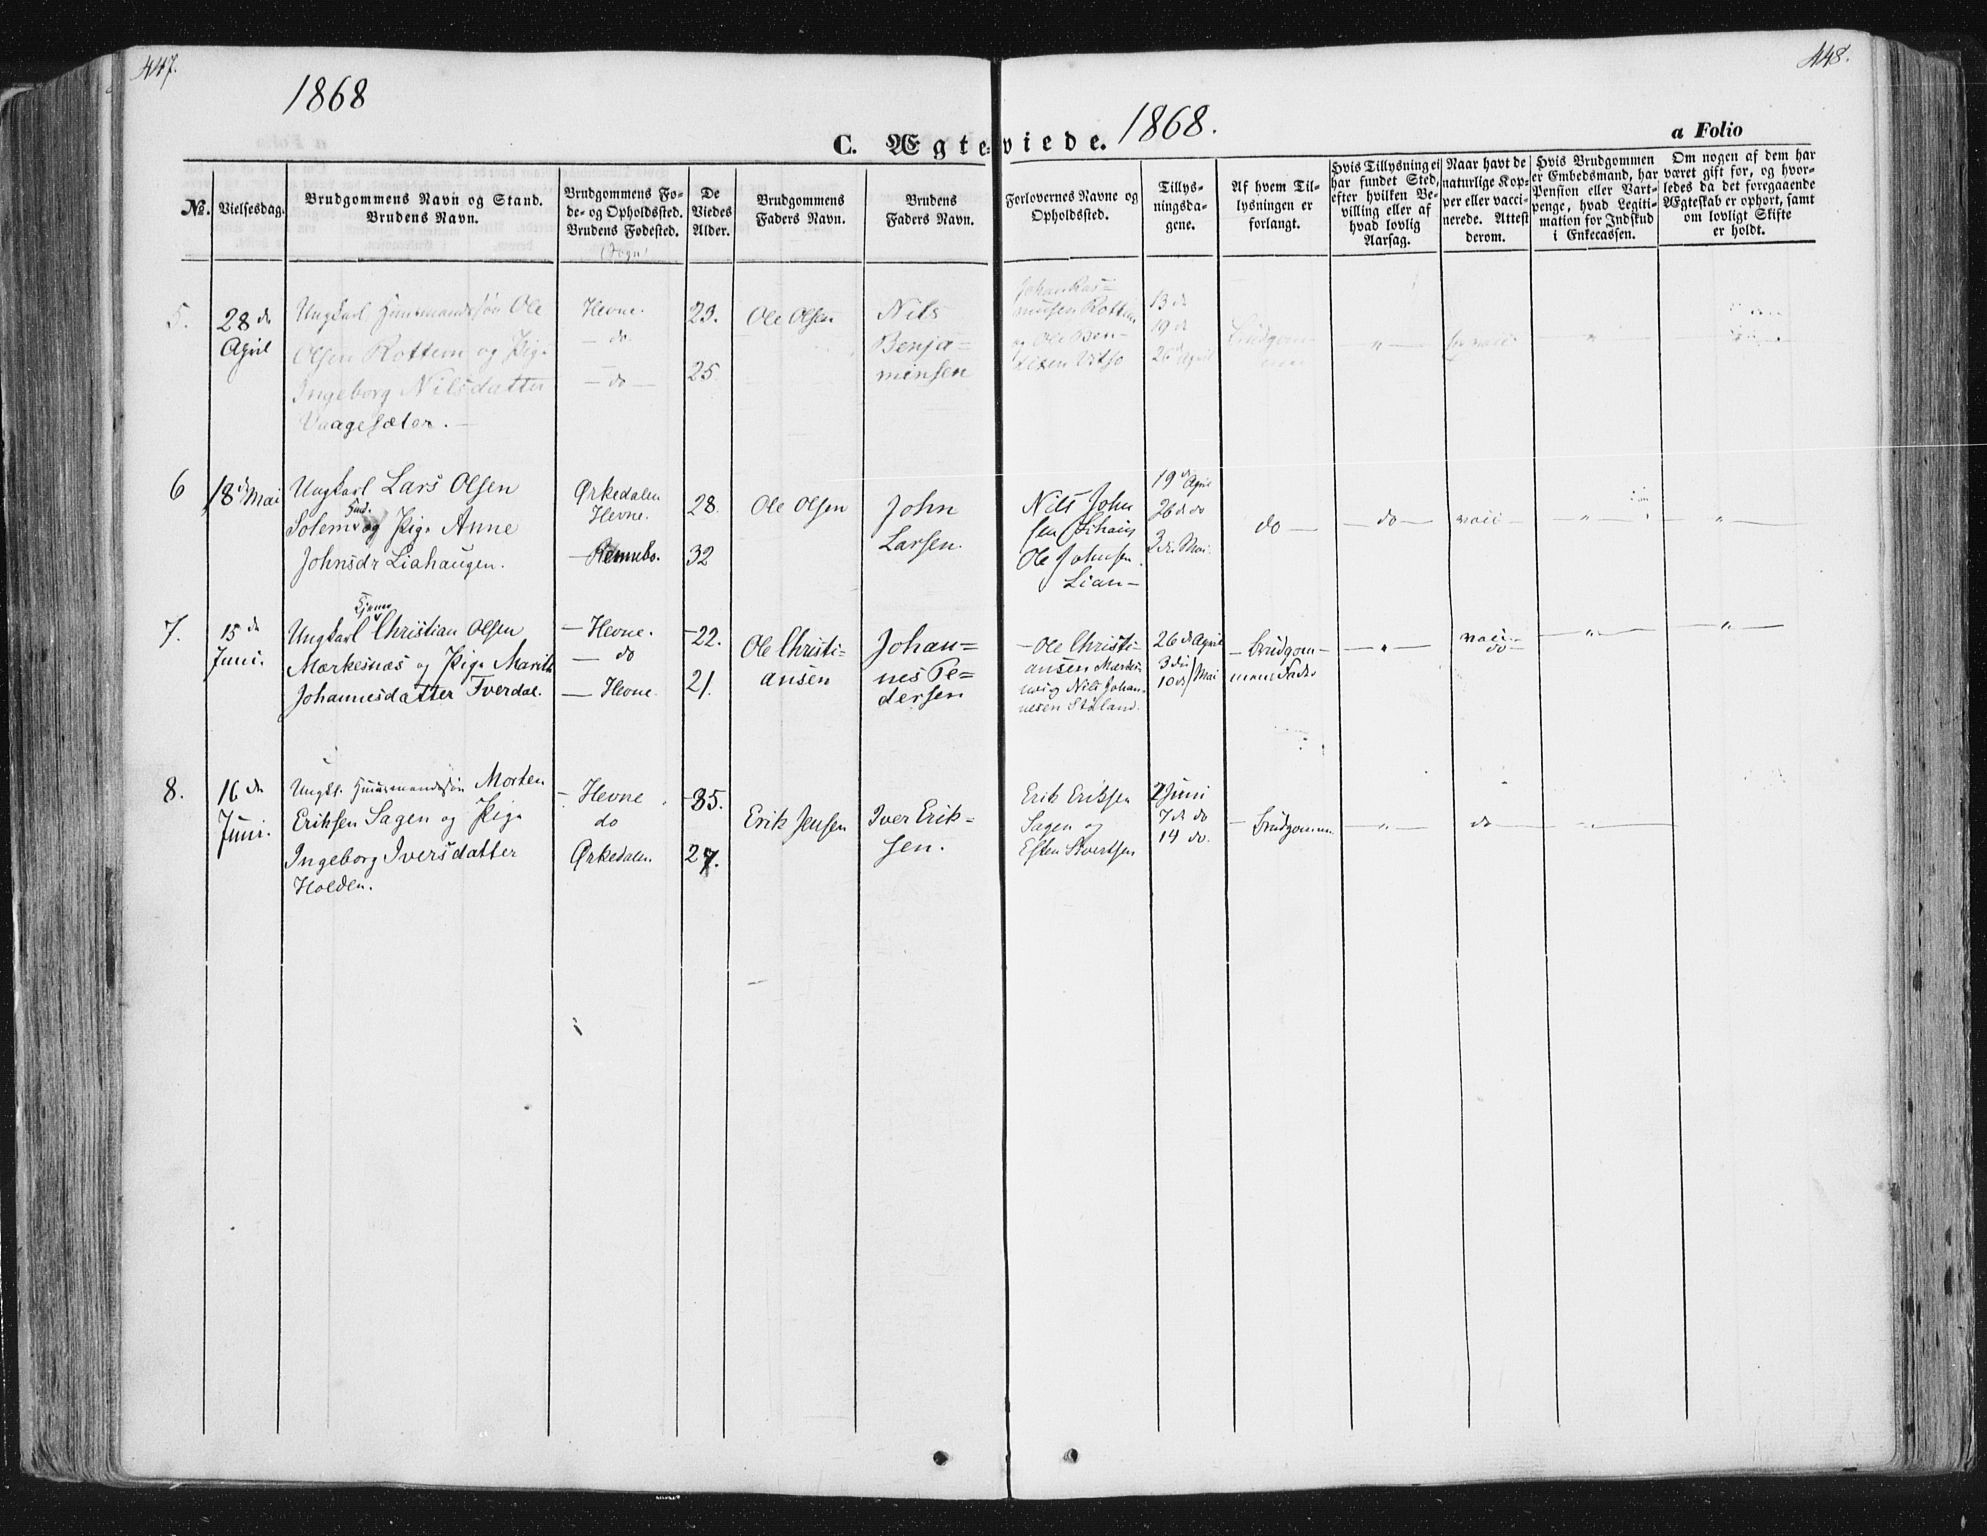 447.
448.
1868
1868.
C. Ægteviede.
a Folio
No.
Vielsesdag.
Brudgommens Navn og Stand.
Brudens Navn.
Brudgommens Fø-
de- og Opholdssted.
Brudens Fødested.
(Sogn)
De
Viedes
Alder.
Brudgommens
Faders Navn.
Brudens
Faders Navn.
Forlovernes Navne og
Opholdssted.
Tillys-
ningsda-
gene.
Af hvem Til-
lysningen er
forlangt.
Hvis Tillysning ei
har fundet Sted,
efter hvilken Be-
villing eller af
hvad lovlig
Aarsag.
Naar havt de
naturlige Kop-
per eller vacci-
nerede. Attest
derom.
Hvis Brudgommen
er Embedsmand, har
Pension eller Vart-
penge, hvad Legiti-
mation for Indskud
i Enkecassen.
Om nogen af dem har
været gift før, og hvor-
ledes da det foregaaende
Ægteskab er ophørt, samt
om lovligt Skifte
er holdt.
5.
28 de
April
Ungkarl Huusmandssøn Ole
Olsen Rottem og Pige
Ingeborg Nilsdatter
Vaagesæter.
Hevne.
do.
do
23.
25.
Ole Olsen
Nils
Benja-
minsen
Johan Ras-
mussen Rottem
og Ole Ben-
13 de
19 d
26 d April
Brudgom-
men
6
18 d Mai
Ungkarl Lars Olsen
Solem og Pige Anne
Johnsdr Liahaugen.
Ørkedalen
Hevne.
Rennebo.
28.
32
Ole Olsen
John
Larsen.
Nils John
sen
Ole Johnsen
Lian
19 d April
26 d do
3 di Mai.
do
do
vacc
7.
15 de
Juni.
Ungkarl Christian Olsen
Mærkesnæs og Pige Marith
Johannesdatter Tverdal.
Hevne.
do
Hevne.
22.
21.
Ole Christi-
ansen
Johan-
nes Pe-
dersen
Ole Christi-
ansen Mærkes-
og Nils Johan-
nesen Støland.
26 d April
3 die
10 d Mai
Brudgom-
mens Fader
vacc.
do
8.
16 de
Juni.
Ungk. Huusmandssøn Morten
Eriksen Sagen og Pige
Ingeborg Iversdatter
Holden.
Hevne
do
Ørkedalen.
35.
27.
Erik Jensen
Iver Erik-
sen.
Erik Eriksen
Sagen og
Esten Sivertsen
2 Juni
7 d do
14 do.
Brudgommen
do